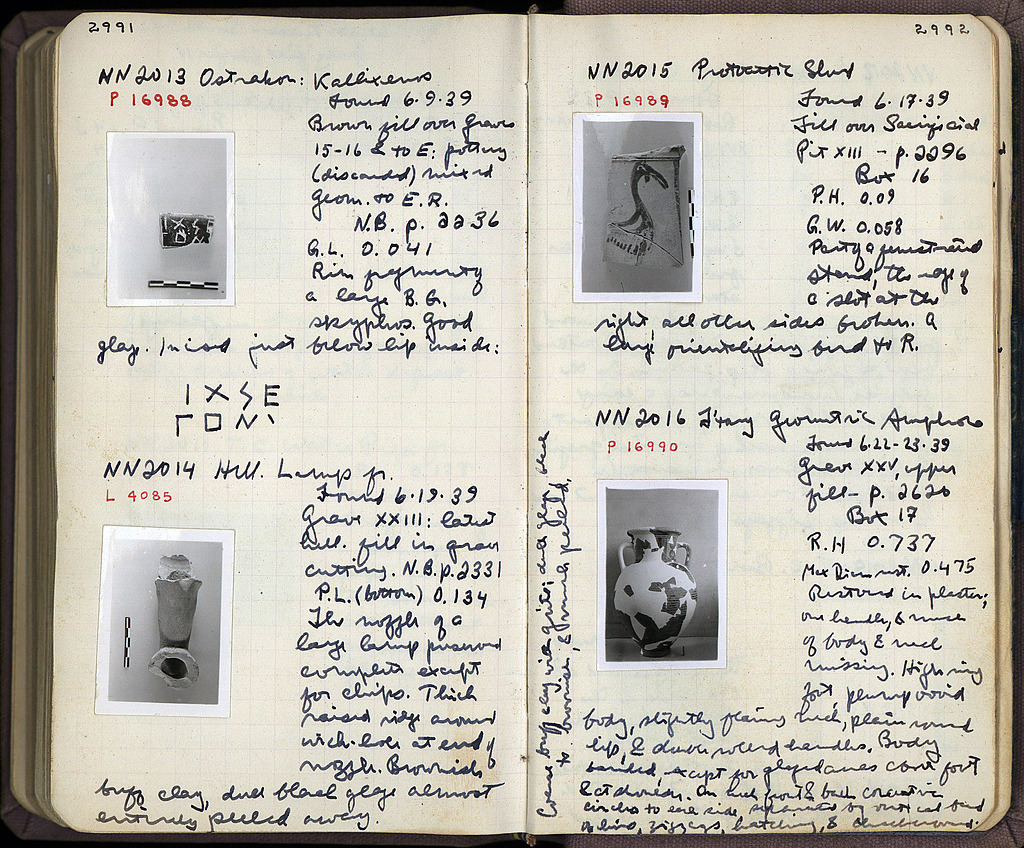 2991
NN2013 Ostrakon: Kallixenos
P 16988
Found 6.9.39
Brown fill over Graves
15-16 & to E: pottery
(discarded) mixed
Geom. to E.R.
N.B. p. 2236
G.L. 0.041
Rim fragment of
a large B.G.
skyphos. Good
glaze. Incised just below lip inside:
I X S E
Γ O N
NN2014 Hell. Lamp fr.
L 4085
Found 6.19.39
Grave XXIII: latest
hell. fill in grave
cutting. N.B. p. 2331
P.L. (bottom) 0.134
The nozzle of a
large lamp preserved
complete except
for chips. Thick
raised ridge around
wick-hole at end of
nozzle. Brownish
buff clay, dull black glaze almost
entirely peeled away.
2992
NN2015 Protoattic Stand
P 16989
Found 6.17.39
Fill over Sacrificial
Pit XIII - p. 2296
Box 16
P.H. 0.09
G.W. 0.058
Part of a fenestrated
stand, the edge of
a slot at the
right, all other sides broken. A
large orientalizing bird to R.
NN2016 Geometric Amphora
P 16990
Found 6.22-23.39
Grave XXV, upper
fill - p. 2620
Box 17
R.H 0.737
Max Diam rest. 0.475
Restored in plaster;
one handle, & much
of body & neck
missing. High ring
foot, plump ovoid
body, slightly flaring neck, plain round
lip, & double rolled handles. Body
banded, except for glazed zones above foot
& at shoulder. On neck front & back concentric
circles to each side, separated by vertical band
of lines, zigzags, hatching, & checkerboard.
Coarse buff clay with grits; dull glaze, black
to brownish, & much peeled.